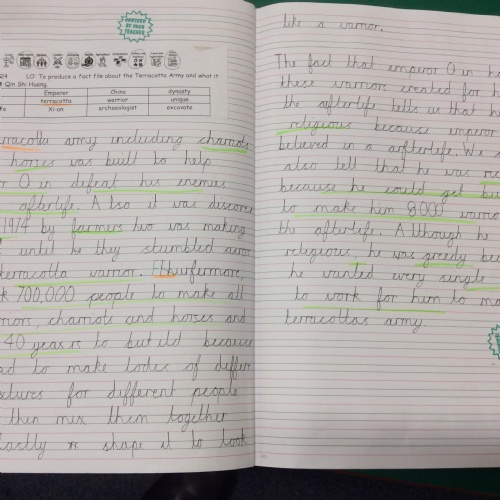 CHECKED BY YOUR TEACHER
24 LO: To produce a fact file about the Terracotta Army and what it
Qin Shi Huang.
Emperor China dynasty
terracotta warrior unique
fe Xi-an archaeologist excavate
rracolla army including chariots
horses was built to help
r Q in defeat his enemies
afterlife. Also it was discover
1974 by farmers hwo was making
until he they stumbled acror
terracotta warrior. Fthurfermore,
k 700,000 people to make all
riors, chariots and horses and
40 years to butild because
ad to make lodes of differ
xtures for different people
then mix them together
lastly shape it to look
like a warrior.
The fact that emperor Q in ha
these warriors created for h
the afterlife tells us that he
religious because emperor
believed in a arfterlife. We
also tell that he was
because he could get
to make him 8000 warrio
the afterlife. Although he
religious, he was greedy bec
he wanted every single
to work for him to ma
terracottas army.